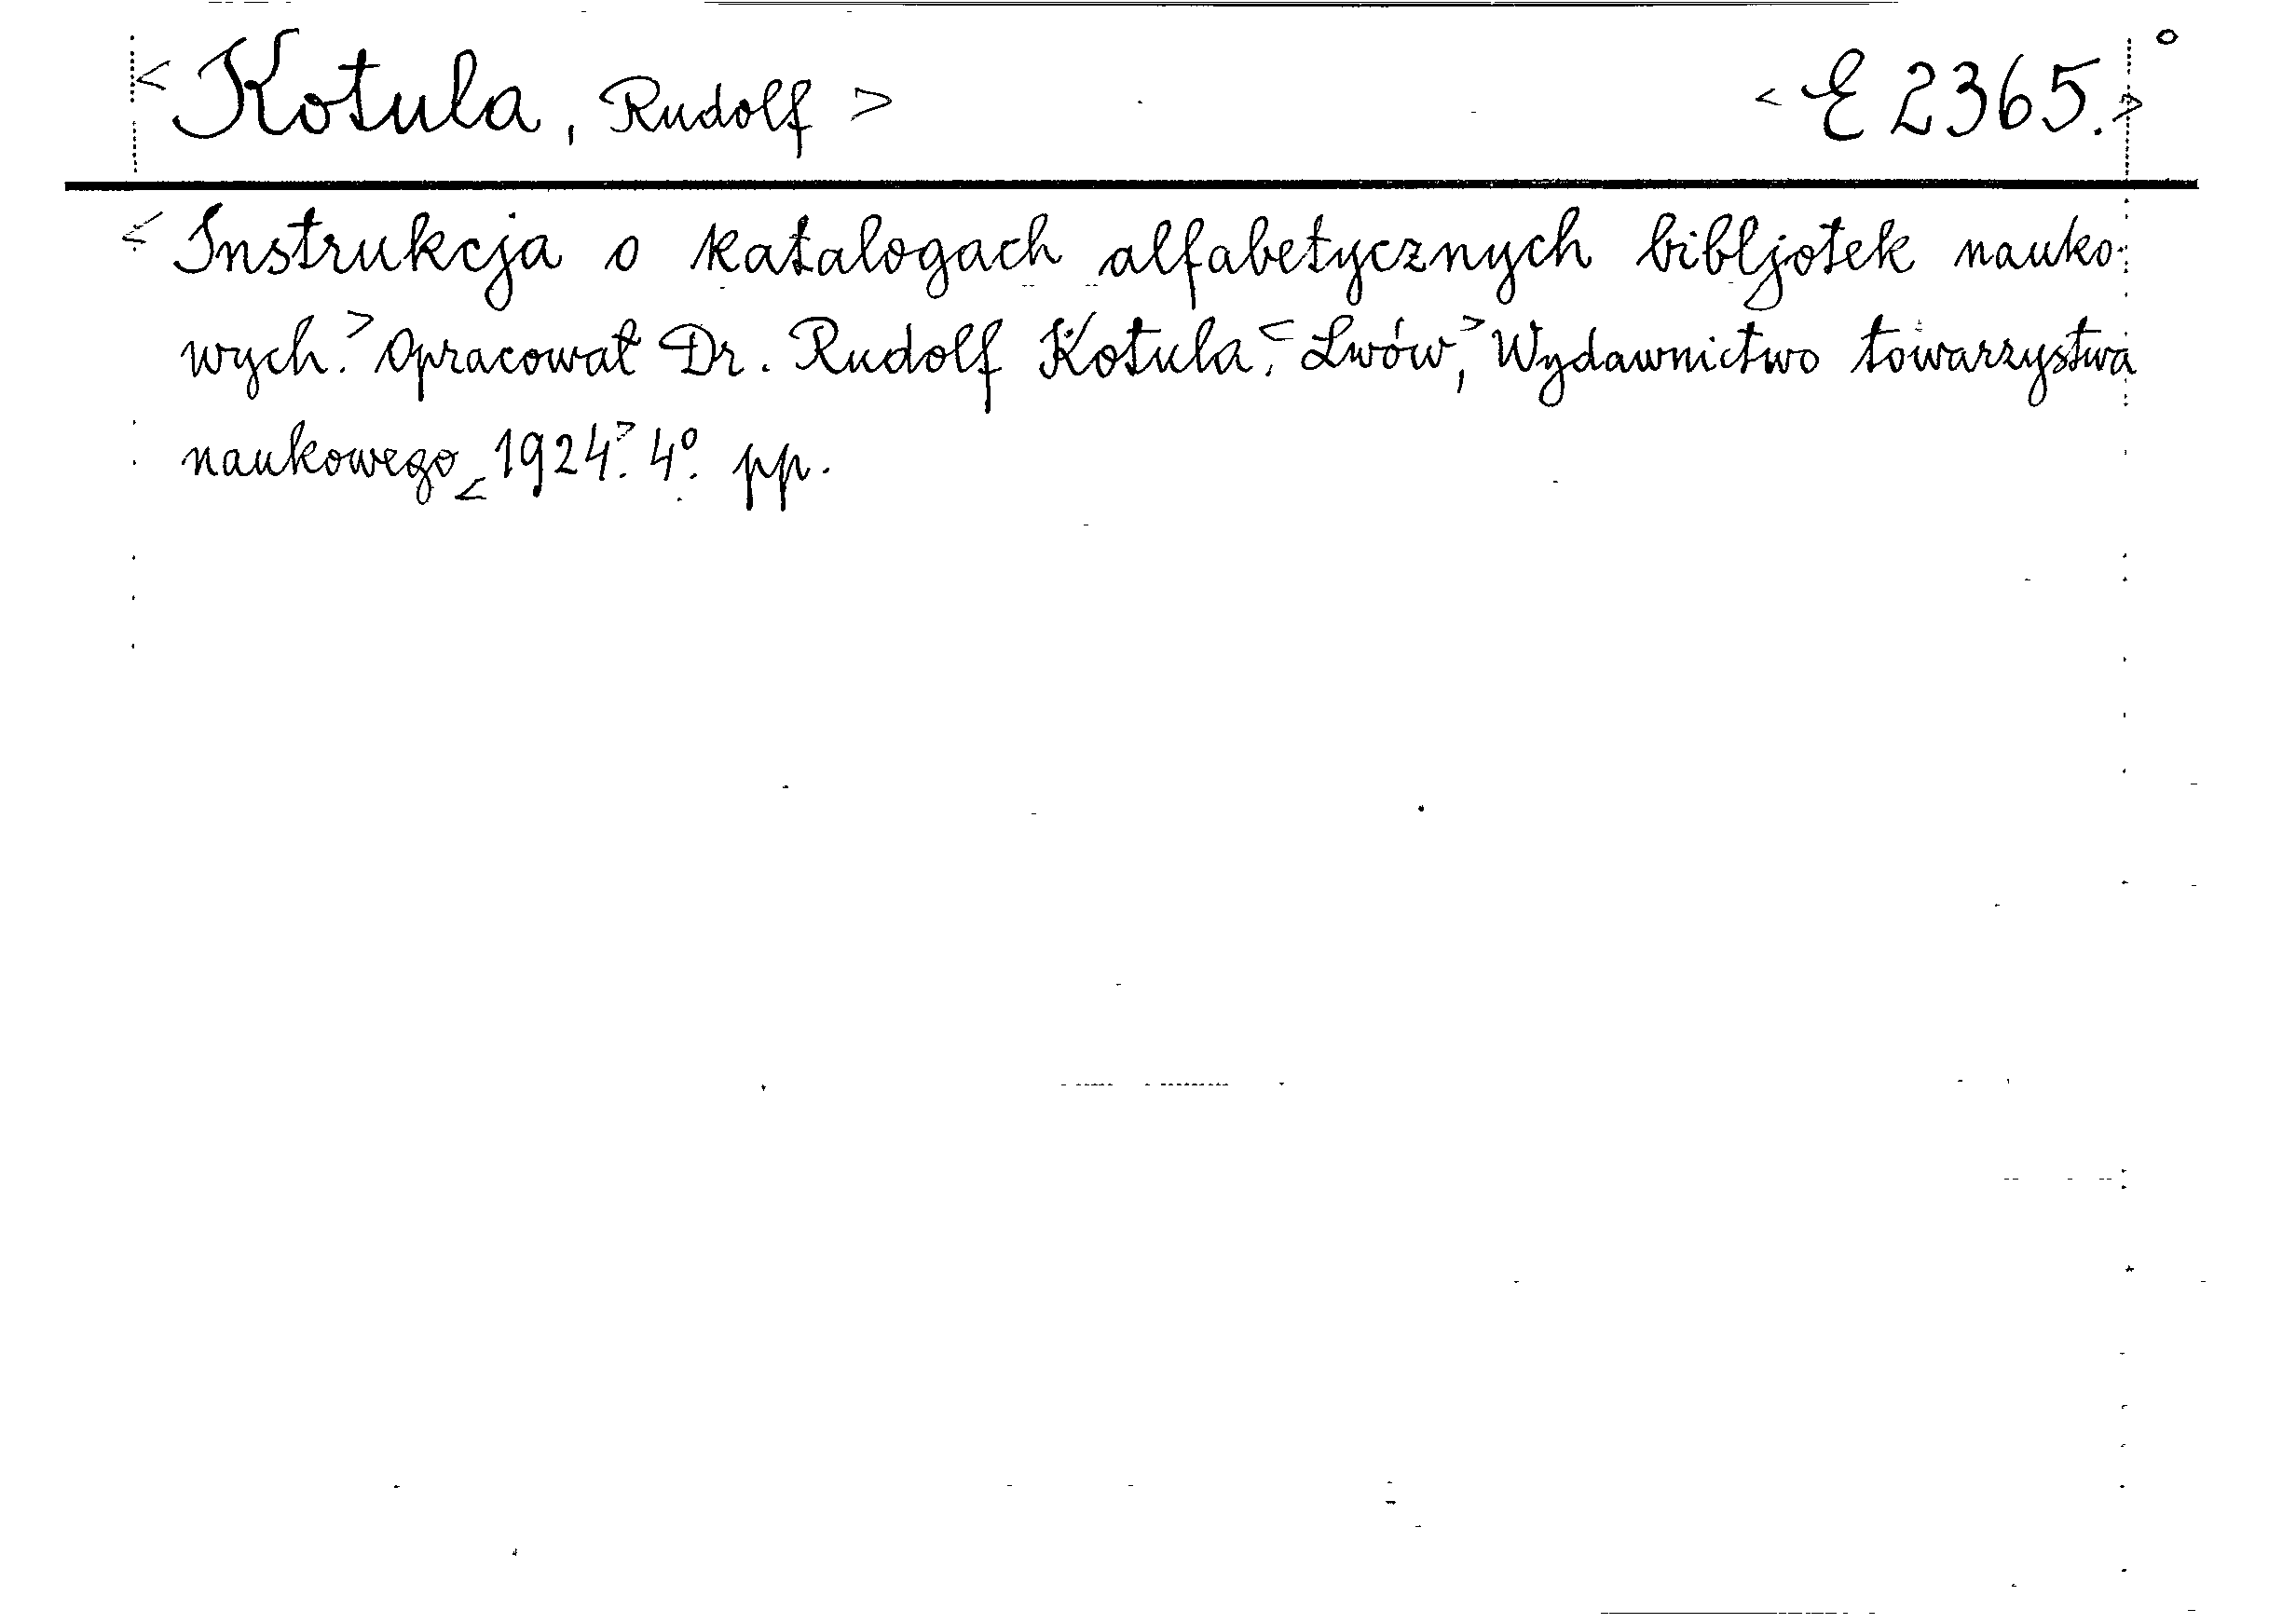 < Kotula, Rudolf > < E 2365. >
< Instrukcja o katalogach alfabetycznych bibljotek nauko-
wych. > Opracował Dr. Rudolf Kotula. < Lwów, > Wydawnictwo towarzystwa
naukowego < 1924. > 4º. pp.